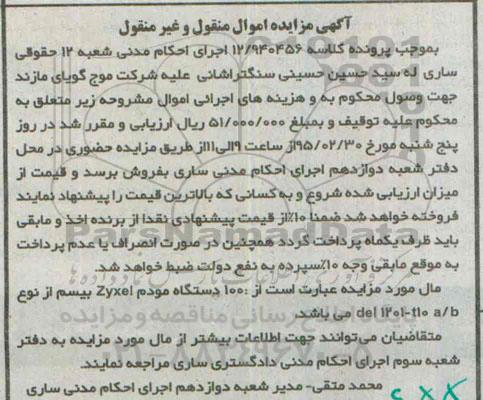 آگهی مزایده اموال منقول و غیر منقول
بموجب پرونده کلاسه ۱۲/۹۴۰۴۵۶ اجرای احکام مدنی شعبه ۱۲ حقوقی
ساری له سید حسین حسینی سنگتراشانی علیه شرکت موج گویای مازند
جهت وصول محکوم به و هزینه های اجرائی اموال مشروحه زیر متعلق به
محکوم علیه توقیف و بمبلغ ۵۱/۰۰۰/۰۰۰ ریال ارزیابی و مقرر شد در روز
پنج شنبه مورخ ۹۵/۰۲/۳۰از ساعت ۹الی۱۱از طریق مزایده حضوری در محل
دفتر شعبه دوازدهم اجرای احکام مدنی ساری بفروش برسد و قیمت از
میزان ارزیابی شده شروع و به کسانی که بالاترین قیمت را پیشنهاد نمایند
فروخته خواهد شد ضمنا ۱۰٪از قیمت پیشنهادی نقدا از برنده اخذ و مابقی
باید ظرف یکماه پرداخت گردد همچنین در صورت انصراف یا عدم پرداخت
به موقع مابقی وجه ۱۰٪سپرده به نفع دولت ضبط خواهد شد.
مال مورد مزایده عبارت است از :۱۰۰ دستگاه مودم Zyxel بیسم از نوع
del 1201-t10 a/b می باشد.
متقاضیان می‌توانند جهت اطلاعات بیشتر از مال مورد مزایده به دفتر
شعبه سوم اجرای احکام مدنی دادگستری ساری مراجعه نمایند.
محمد متقی- مدیر شعبه دوازدهم اجرای احکام مدنی ساری
ParsNamadData
۰۲۱-۸۸۳۴۹۶۷۰-۵